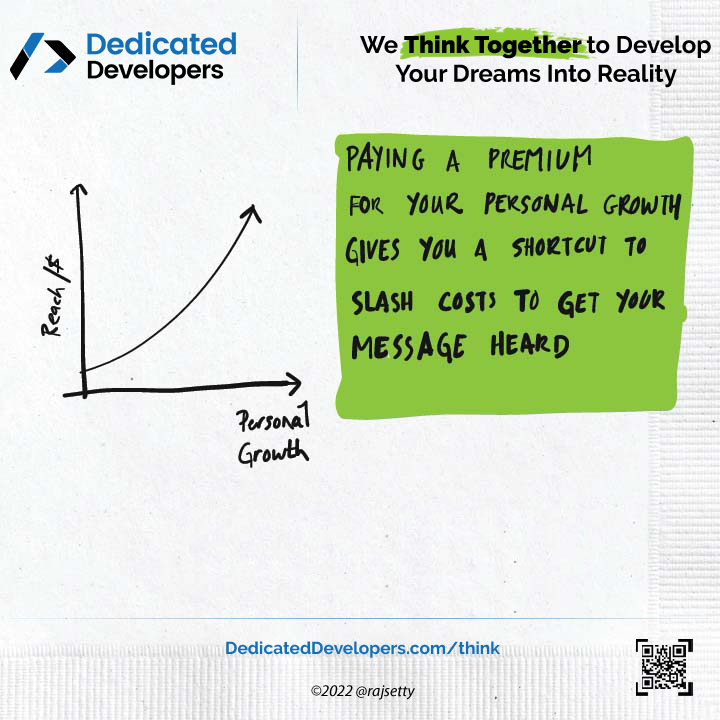 Dedicated
Developers
We Think Together to Develop
Your Dreams Into Reality
PAYING A PREMIUM
FOR YOUR PERSONAL GROWTH
GIVES YOU A SHORTCUT TO
SLASH COSTS TO GET YOUR
MESSAGE HEARD
Reach/$
Personal
Growth
DedicatedDevelopers.com/think
©2022 @rajsetty